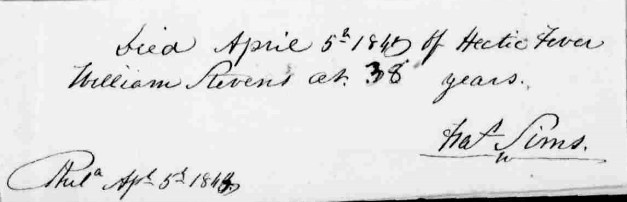 Died April 5th 184 of Hectic Fever
William Stevens aet. 38 years.
Sims.
Phila Apl 5th 184